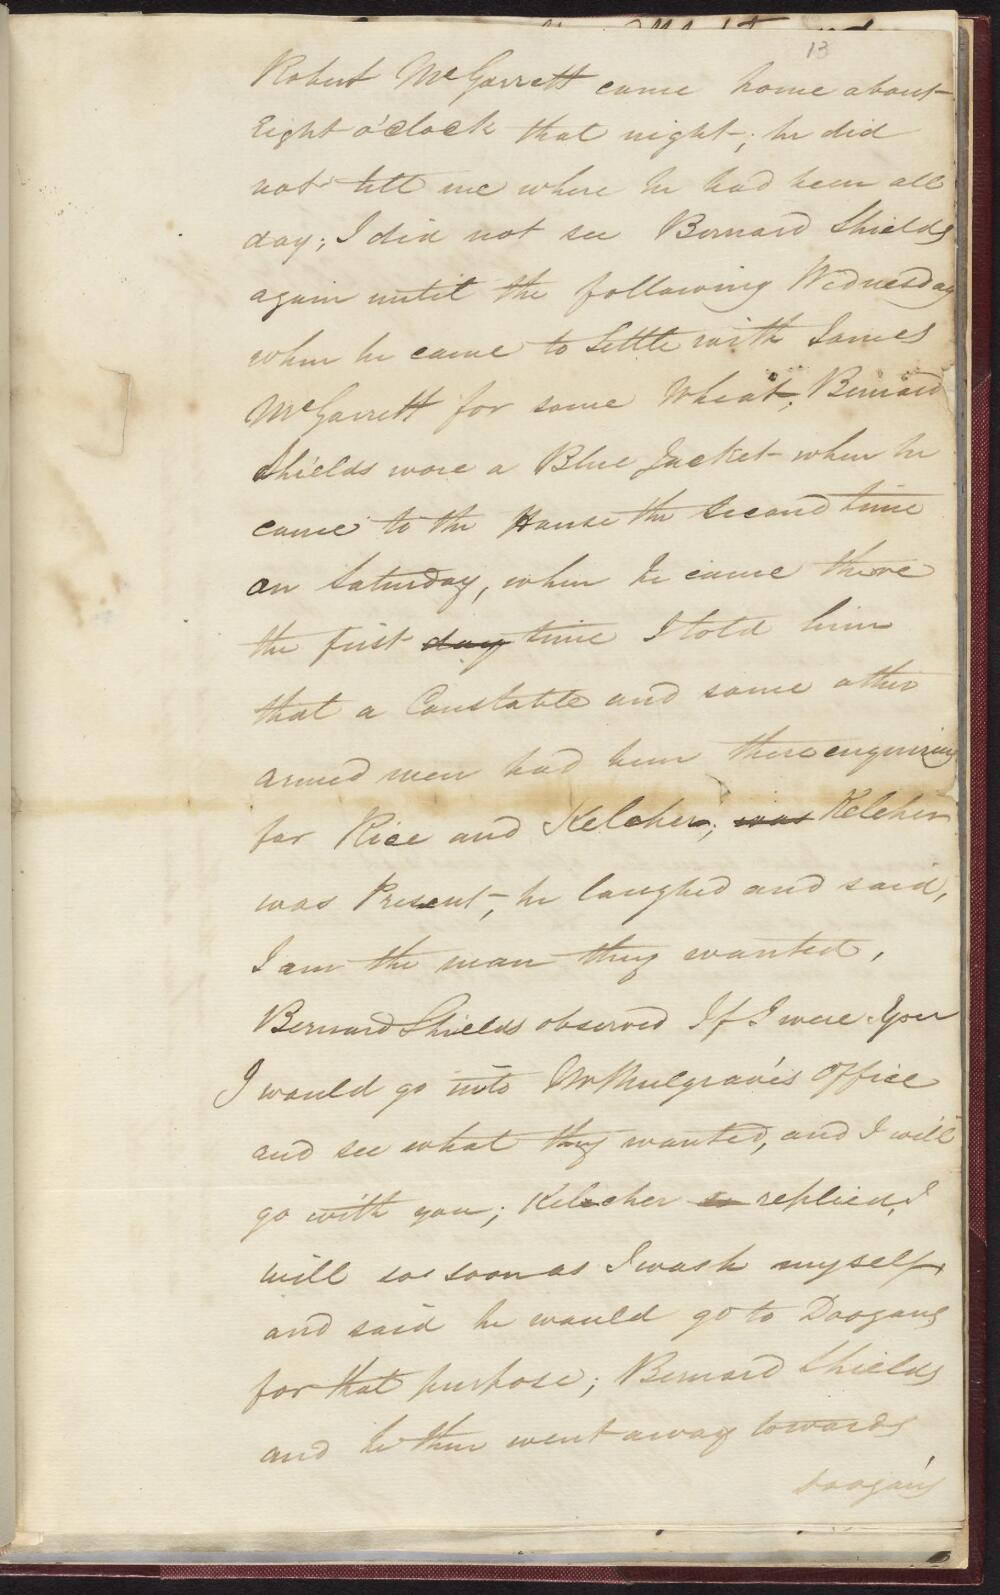 13
Robert McGarrett came home about
Eight o'Clock that night; he did
not tell me where he had been all
day; I did not see Bernard Shields
again until the following Wednesday
when he came to Settle with James
McGarrett for some Wheat; Bernard
Shields wore a Blue Jacket when he
came to the House the second time
on Saturday, when he came there
the first day time I told him
that a Constable and some other
armed men had been there enquiring
for Rice and Kelcher; was Kelcher
was Present, he laughed and said,
I am the man they wanted,
Bernard Shields observed If I were you
I would go into Mr Mulgrave's Office
and see what they wanted, and I will
go with you; Kelcher so replied, I
will so soon as I wash myself,
and said he would go to Doogans
for that purpose; Bernard Shields
and he then went away towards
Doogan's